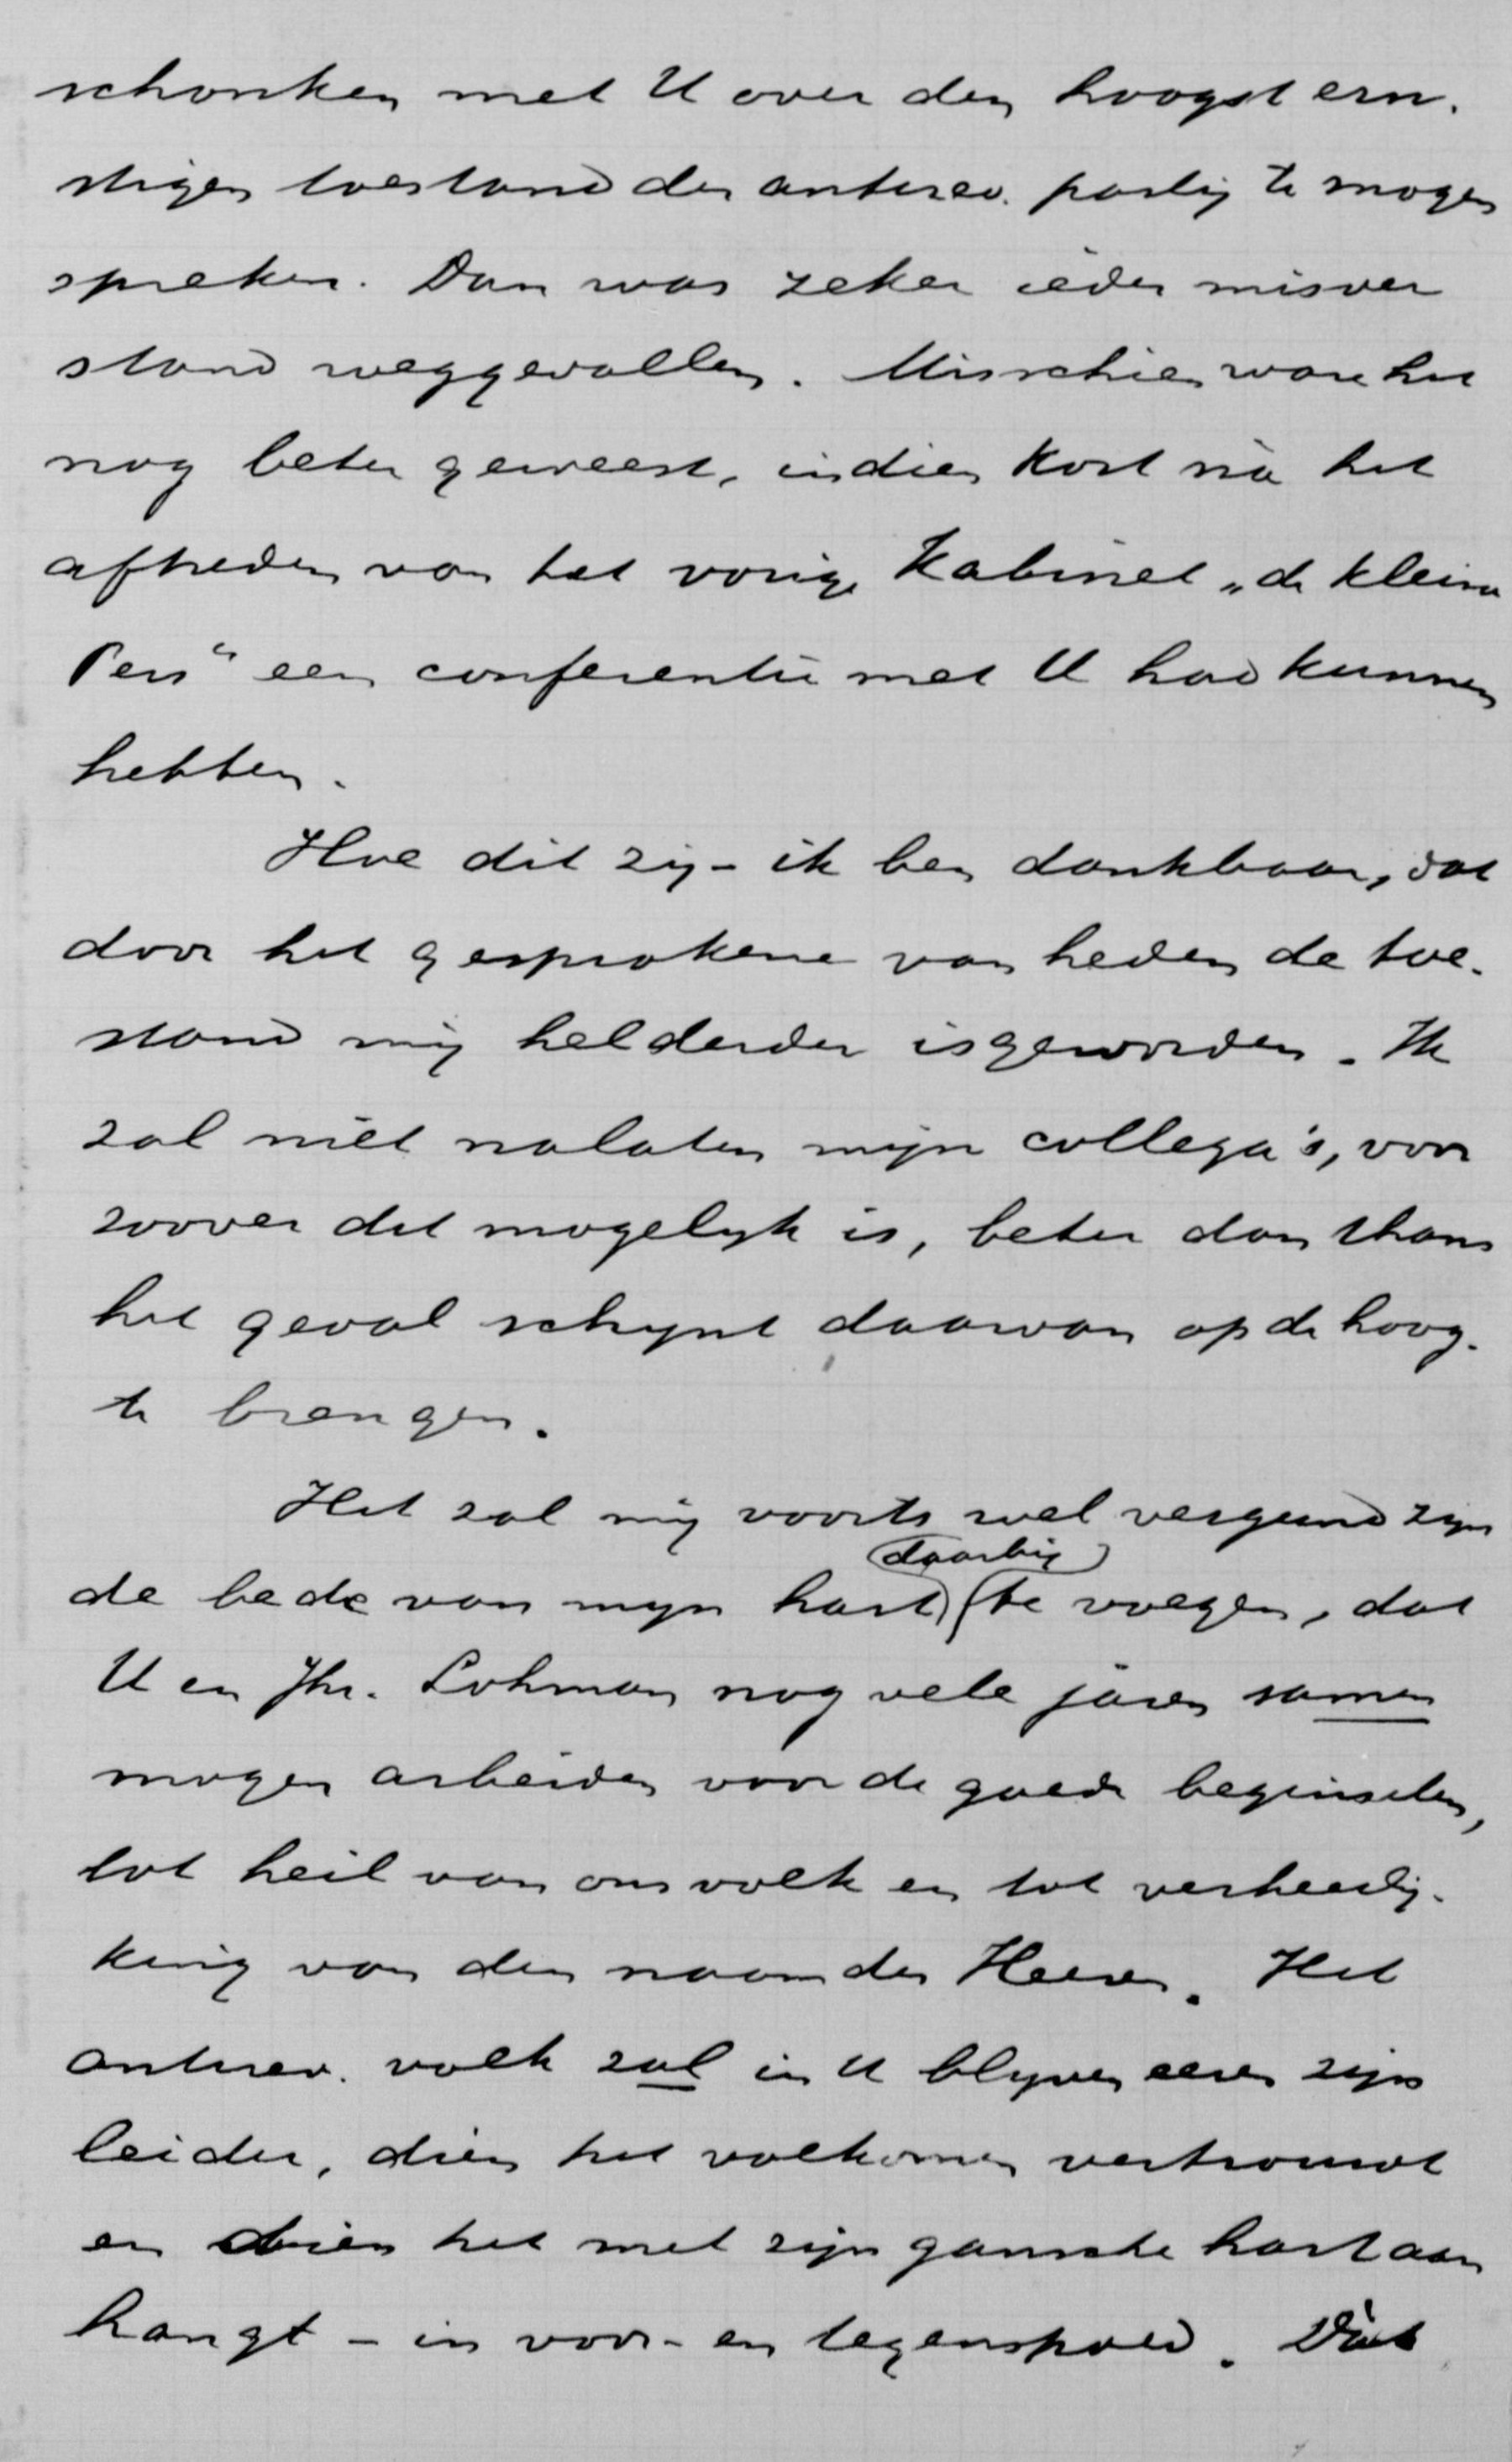 schonken met U over den hoogst ern-
stigen toestand der antirev. partij te mogen
spreken. Dan was zeker ieder misver
stand weggevallen. Misschien ware het
nog beter geweest, indien kort nà het
aftreden van het vorige Kabinet „de kleine
Pers" een conferentie met U had kunnen
hebben.
Hoe dit zij - ik ben dankbaar, dat
door het gesprokene van heden de toe-
stand mij helderder is geworden. Ik
zal niet nalaten mijn collega's, voor
zoover dit mogelijk is, beter dan thans
het geval schijnt daarvan op de hoog-
te brengen.
Het zal mij voorts wel vergund zijn
daarbij
de bede van mijn hart te voegen, dat
U en Jhr. Lohman nog vele jaren samen
mogen arbeiden voor de goede beginselen,
tot heil van ons volk en tot verheerlij-
king van den naam des Heeren. Het
antirev. volk zal in U blijven eeren zijn
leider, dien het volkomen vertrouwt
en dien het met zijn gansche hart aan
hangt - in voor- en tegenspoed. Dàt